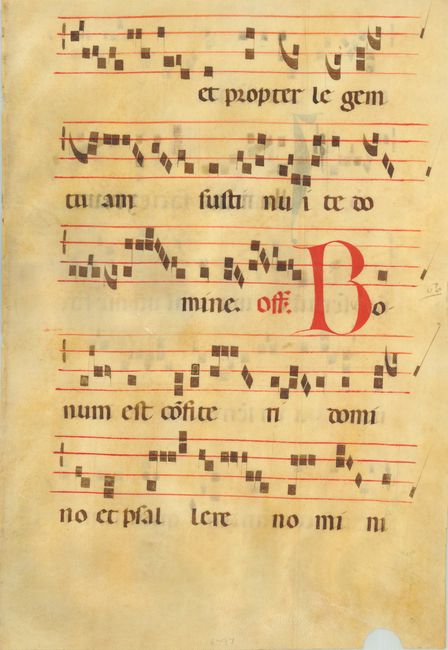 et propter le gem
tu am susti nu i te do
mine. off. Bo
num est cōfite ri domi
no et psal lere no mi ni